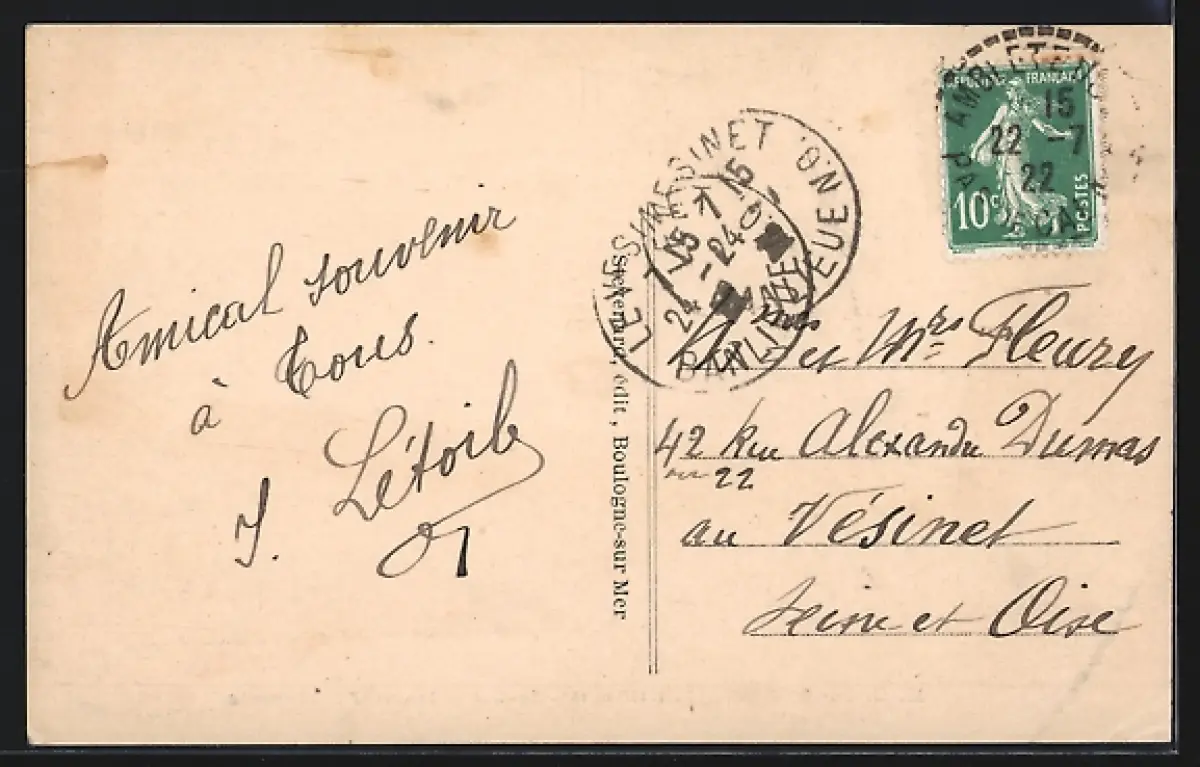 Amical souvenir
à Tous.
J. Létoile
Stevenard, édit., Boulogne-sur Mer
AMBLETEUSE
15
22 -7
22
PAS DE CALAIS
FRANÇAISE
10c
POSTES
LE VESINET
24 -7
BANLIEUE
et Mrs Fleury
42 Rue Alexandre Dumas
ou 22
au Vésinet
Seine et Oise